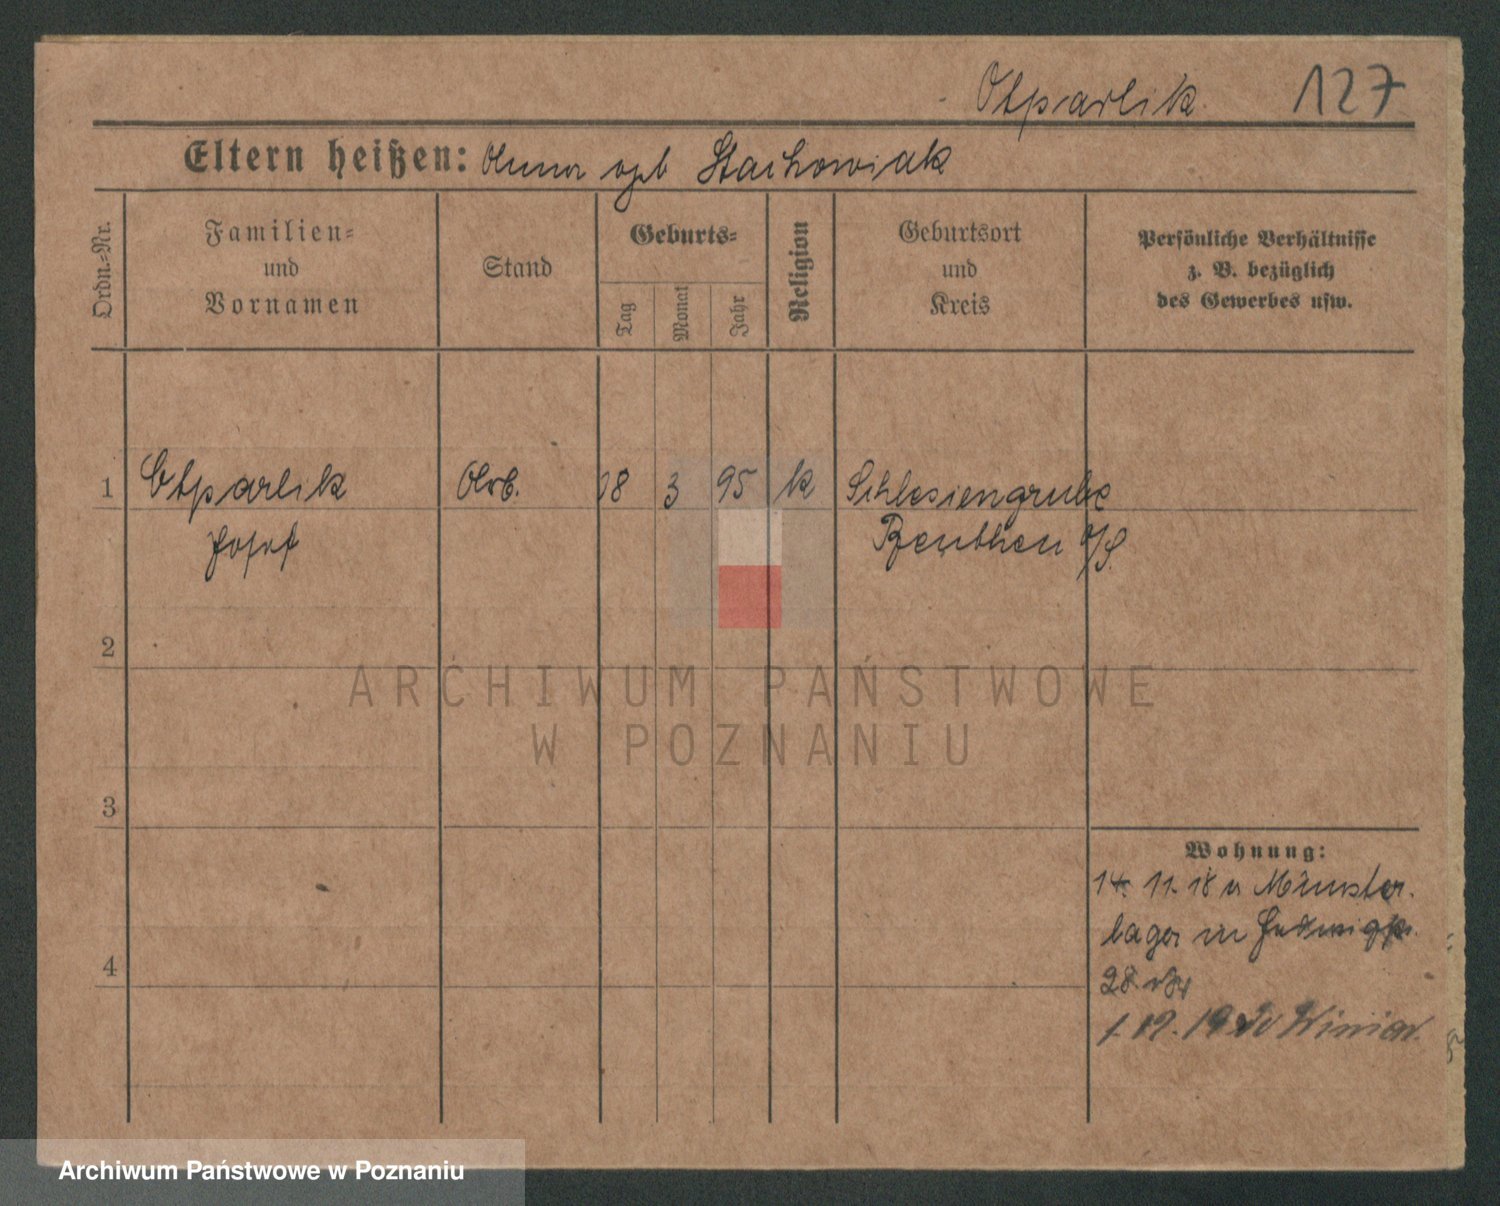 Otparlik 127
Eltern heißen: Anna geb Stachowiak
Ordn.-Nr.
Familien-
und
Vornamen
Stand
Geburts-
Tag
Monat
Jahr
Religion
Geburtsort
und
Kreis
Persönliche Verhältnisse
z. B. bezüglich
des Gewerbes usw.
1 Otparlik Arb. 18 3 95 k Schlesiengrube
Josef Beuthen o/S.
2
3
4
Wohnung:
14. 11. 18 v Münster.
lager in
28
1. 12. 19 Winiar.
ARCHIWUM PAŃSTWOWE
W POZNANIU
Archiwum Państwowe w Poznaniu